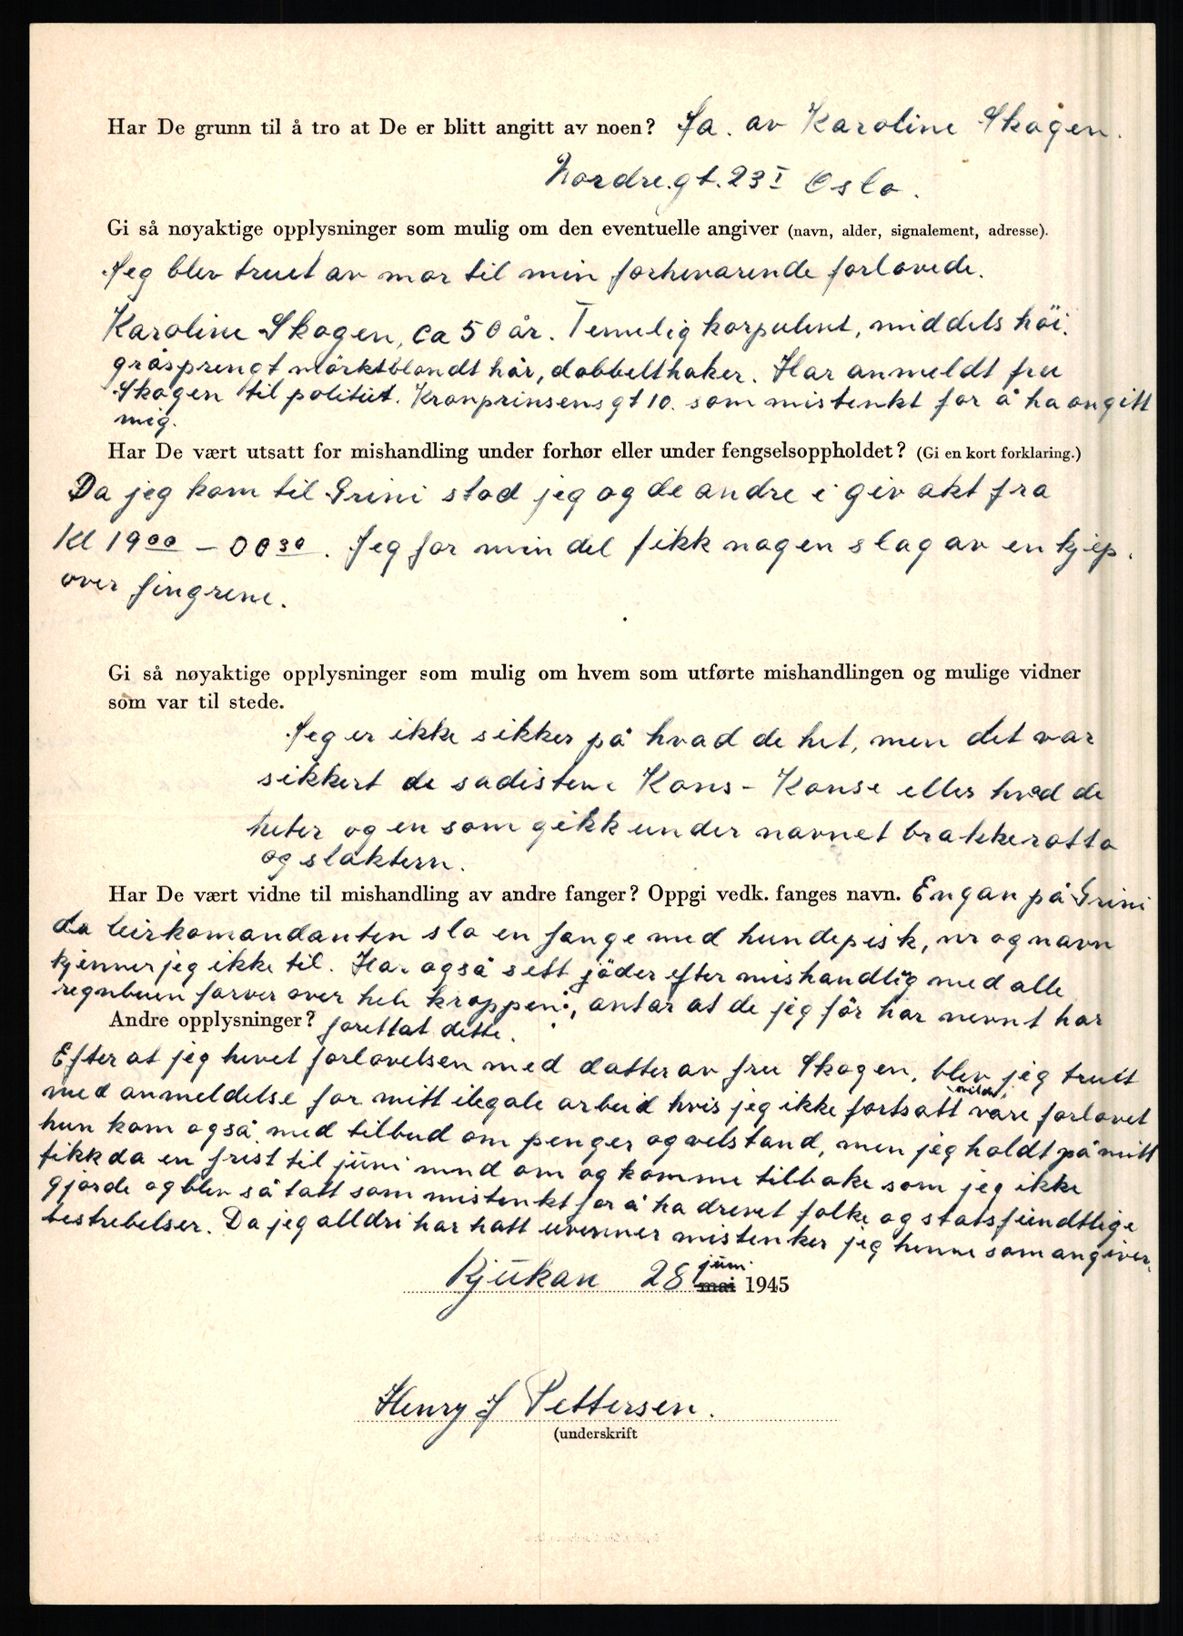 Har De grunn til å tro at De er blitt angitt av noen? Ja. av Karoline Skogen.
Nordre.gt. 23 I Oslo.
Gi så nøyaktige opplysninger som mulig om den eventuelle angiver (navn, alder, signalement, adresse).
Jeg blev truet av mor til min forhenvarende forlovede.
Karoline Skogen, ca 50 år. Temmelig korpulent, middels höi.
gråsprengt mörktblondt hår, dobbelthaker. Har anmeldt fru
Skogen til politiet. Kronprinsensgt 10. som mistenkt for å ha angitt
mig.
Har De vært utsatt for mishandling under forhør eller under fengselsoppholdet? (Gi en kort forklaring.)
Da jeg kom til Grini stod jeg og de andre i giv akt fra
Kl 19 00 - 00 30. Jeg for min del fikk nogen slag av en kjep.
over fingrene.
Gi så nøyaktige opplysninger som mulig om hvem som utførte mishandlingen og mulige vidner
som var til stede.
Jeg er ikke sikker på hvad de het, men det var
sikkert de sadistene Kons - Konse eller hvad de
heter og en som gikk under navnet brakkerotta
og slaktern.
Har De vært vidne til mishandling av andre fanger? Oppgi vedk. fanges navn. Engan på Grini
da leirkomandanten slo en fange med hundepisk, nr og navn
kjenner jeg ikke til. Har også sett jöder efter mishandlig med alle
regnbuen farver over hele kroppen, antar at de jeg för har nevnt har
Andre opplysninger? forettat dette.
Efter at jeg hevet forlovelsen med datter av fru Skogen, blev jeg truet
med anmeldelse for mitt ilegale arbeid hvis jeg ikke fortsatt være forlovet
hun kom også med tilbud om penger og velstand, men jeg holdt på mitt
fikk da en frist til jüni mnd om og komme tilbake som jeg ikke
gjorde og blev så tatt som mistenkt for å ha drevet folke og statsfiendtlige
bestrebelser. Da jeg alldri har hatt uvenner mistenker jeg henne som angiver.
Rjükan 28 jüni mai 1945
Henry J Pettersen.
(underskrift